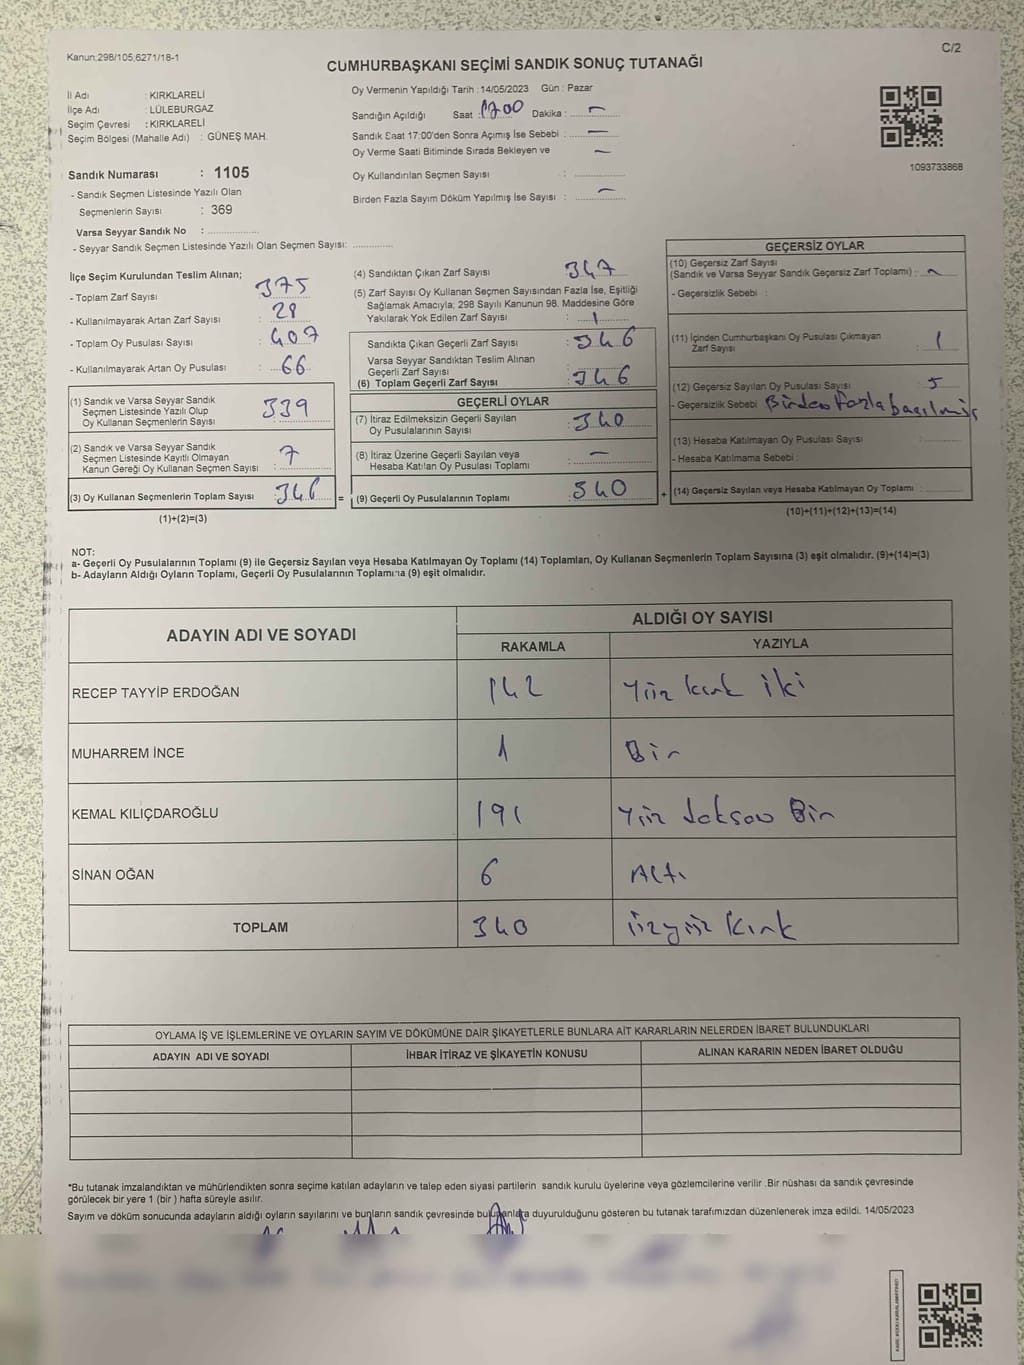 Kanun:298/105,6271/18-1
C/2
CUMHURBAŞKANI SEÇİMİ SANDIK SONUÇ TUTANAĞI
İl Adı : KIRKLARELİ
İlçe Adı : LÜLEBURGAZ
Seçim Çevresi : KIRKLARELİ
Seçim Bölgesi (Mahalle Adı) : GÜNEŞ MAH.
Sandık Numarası : 1105
- Sandık Seçmen Listesinde Yazılı Olan
Seçmenlerin Sayısı : 369
Varsa Seyyar Sandık No :
- Seyyar Sandık Seçmen Listesinde Yazılı Olan Seçmen Sayısı:
Oy Vermenin Yapıldığı Tarih :14/05/2023 Gün : Pazar
Sandığın Açıldığı Saat : 1700 Dakika : —
Sandık Saat 17:00'den Sonra Açımış İse Sebebi : —
Oy Verme Saati Bitiminde Sırada Bekleyen ve —
Oy Kullandırılan Seçmen Sayısı :
Birden Fazla Sayım Döküm Yapılmış İse Sayısı : —
1093733868
İlçe Seçim Kurulundan Teslim Alınan;
- Toplam Zarf Sayısı : 375
- Kullanılmayarak Artan Zarf Sayısı : 28
- Toplam Oy Pusulası Sayısı : 407
- Kullanılmayarak Artan Oy Pusulası : 66
(1) Sandık ve Varsa Seyyar Sandık
Seçmen Listesinde Yazılı Olup
Oy Kullanan Seçmenlerin Sayısı : 339
(2) Sandık ve Varsa Seyyar Sandık
Seçmen Listesinde Kayıtlı Olmayan
Kanun Gereği Oy Kullanan Seçmen Sayısı : 7
(3) Oy Kullanan Seçmenlerin Toplam Sayısı : 346
(1)+(2)=(3)
(4) Sandıktan Çıkan Zarf Sayısı : 347
(5) Zarf Sayısı Oy Kullanan Seçmen Sayısından Fazla İse, Eşitliği
Sağlamak Amacıyla, 298 Sayılı Kanunun 98. Maddesine Göre
Yakılarak Yok Edilen Zarf Sayısı : 1
Sandıkta Çıkan Geçerli Zarf Sayısı : 346
Varsa Seyyar Sandıktan Teslim Alınan
Geçerli Zarf Sayısı
(6) Toplam Geçerli Zarf Sayısı : 346
GEÇERLİ OYLAR
(7) İtiraz Edilmeksizin Geçerli Sayılan
Oy Pusulalarının Sayısı : 340
(8) İtiraz Üzerine Geçerli Sayılan veya
Hesaba Katılan Oy Pusulası Toplamı : —
= (9) Geçerli Oy Pusulalarının Toplamı : 340
GEÇERSİZ OYLAR
(10) Geçersiz Zarf Sayısı
(Sandık ve Varsa Seyyar Sandık Geçersiz Zarf Toplamı) : —
- Geçersizlik Sebebi :
(11) İçinden Cumhurbaşkanı Oy Pusulası Çıkmayan
Zarf Sayısı : 1
(12) Geçersiz Sayılan Oy Pusulası Sayısı : 5
- Geçersizlik Sebebi : Birden fazla basılmış
(13) Hesaba Katılmayan Oy Pusulası Sayısı :
- Hesaba Katılmama Sebebi :
+ (14) Geçersiz Sayılan veya Hesaba Katılmayan Oy Toplamı :
(10)+(11)+(12)+(13)=(14)
NOT:
a- Geçerli Oy Pusulalarının Toplamı (9) ile Geçersiz Sayılan veya Hesaba Katılmayan Oy Toplamı (14) Toplamları, Oy Kullanan Seçmenlerin Toplam Sayısına (3) eşit olmalıdır. (9)+(14)=(3)
b- Adayların Aldığı Oyların Toplamı, Geçerli Oy Pusulalarının Toplamına (9) eşit olmalıdır.
ADAYIN ADI VE SOYADI
ALDIĞI OY SAYISI
RAKAMLA YAZIYLA
RECEP TAYYİP ERDOĞAN 142 Yüz kırk iki
MUHARREM İNCE 1 Bir
KEMAL KILIÇDAROĞLU 191 Yüz doksan Bir
SİNAN OĞAN 6 Altı
TOPLAM 340 üçyüz kırk
OYLAMA İŞ VE İŞLEMLERİNE VE OYLARIN SAYIM VE DÖKÜMÜNE DAİR ŞİKAYETLERLE BUNLARA AİT KARARLARIN NELERDEN İBARET BULUNDUKLARI
ADAYIN ADI VE SOYADI İHBAR İTİRAZ VE ŞİKAYETİN KONUSU ALINAN KARARIN NEDEN İBARET OLDUĞU
*Bu tutanak imzalandıktan ve mühürlendikten sonra seçime katılan adayların ve talep eden siyasi partilerin sandık kurulu üyelerine veya gözlemcilerine verilir .Bir nüshası da sandık çevresinde
görülecek bir yere 1 (bir ) hafta süreyle asılır.
Sayım ve döküm sonucunda adayların aldığı oyların sayılarını ve bunların sandık çevresinde bulunanlara duyurulduğunu gösteren bu tutanak tarafımızdan düzenlenerek imza edildi. 14/05/2023